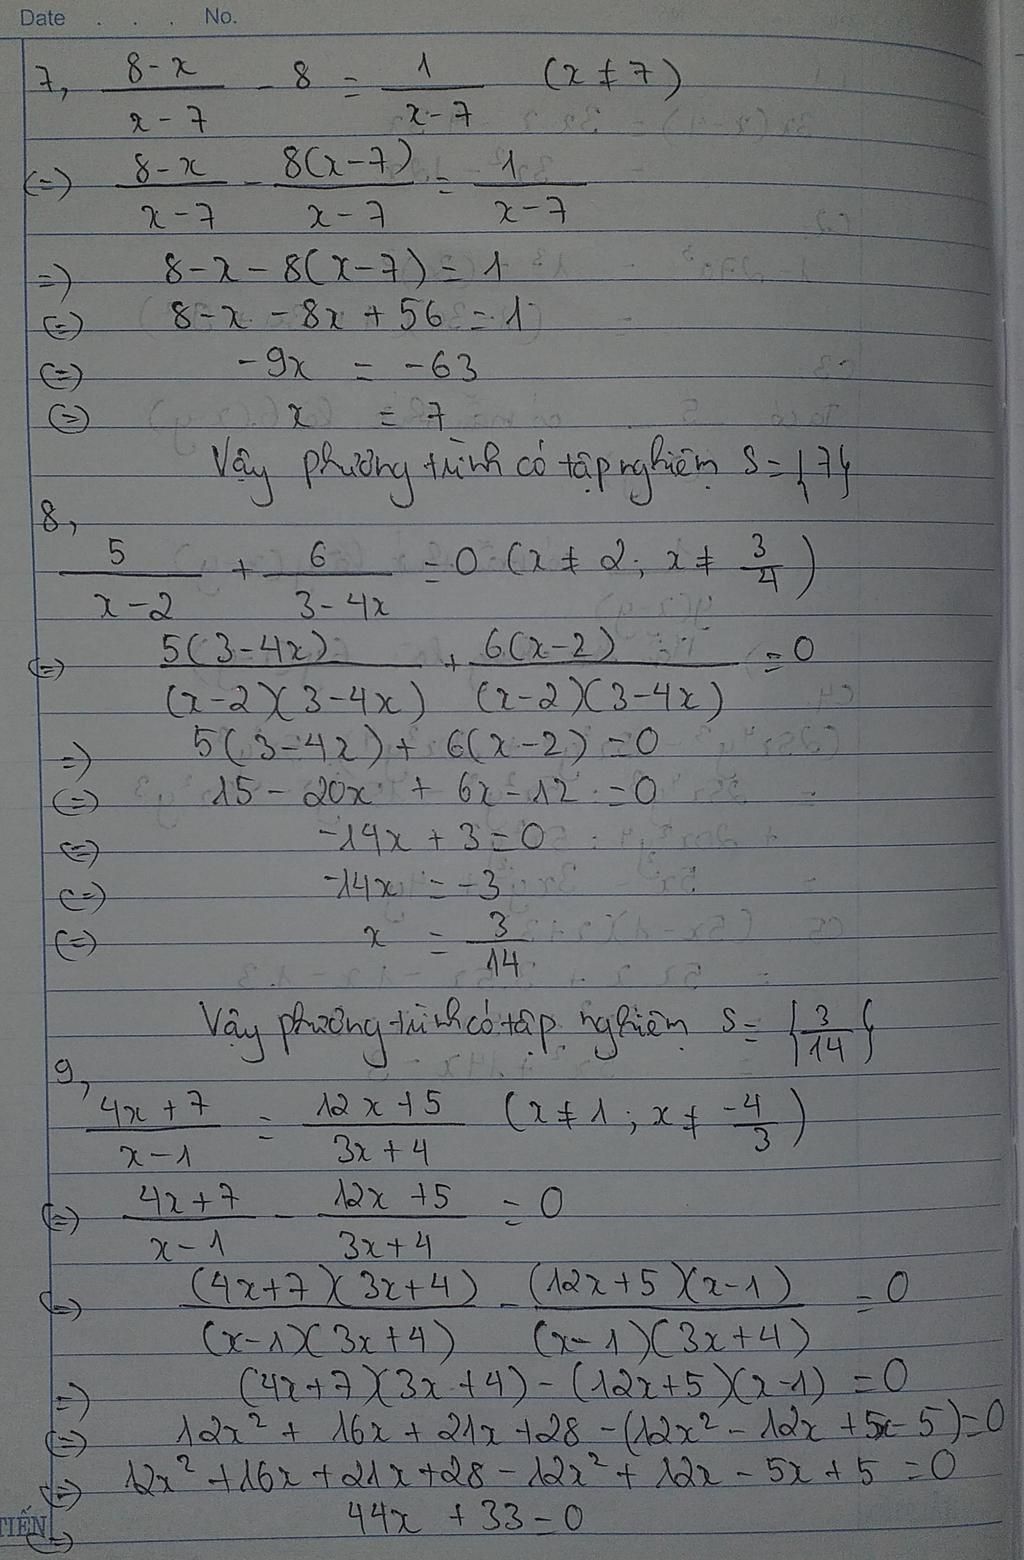 Date . . . No.
7, (8-x)/(x-7) - 8 = 1/(x-7) (x ≠ 7)
(=) (8-x)/(x-7) - 8(x-7)/(x-7) = 1/(x-7)
=) 8-x-8(x-7) = 1
(=) 8-x-8x+56 = 1
(=) -9x = -63
(=) x = 7
Vậy phương trình có tập nghiệm S = {7}
8,
5/(x-2) + 6/(3-4x) = 0 (x ≠ 2; x ≠ 3/4)
(=) 5(3-4x)/((x-2)(3-4x)) + 6(x-2)/((x-2)(3-4x)) = 0
=) 5(3-4x) + 6(x-2) = 0
(=) 15 - 20x + 6x - 12 = 0
(=) -14x + 3 = 0
(=) -14x = -3
(=) x = 3/14
Vậy phương trình có tập nghiệm S = {3/14}
9,
(4x+7)/(x-1) = (12x+5)/(3x+4) (x ≠ 1; x ≠ -4/3)
(=) (4x+7)/(x-1) - (12x+5)/(3x+4) = 0
(=) (4x+7)(3x+4)/((x-1)(3x+4)) - (12x+5)(x-1)/((x-1)(3x+4)) = 0
=) (4x+7)(3x+4) - (12x+5)(x-1) = 0
(=) 12x² + 16x + 21x + 28 - (12x² - 12x + 5x - 5) = 0
(=) 12x² + 16x + 21x + 28 - 12x² + 12x - 5x + 5 = 0
(=) 44x + 33 = 0
TIẾN